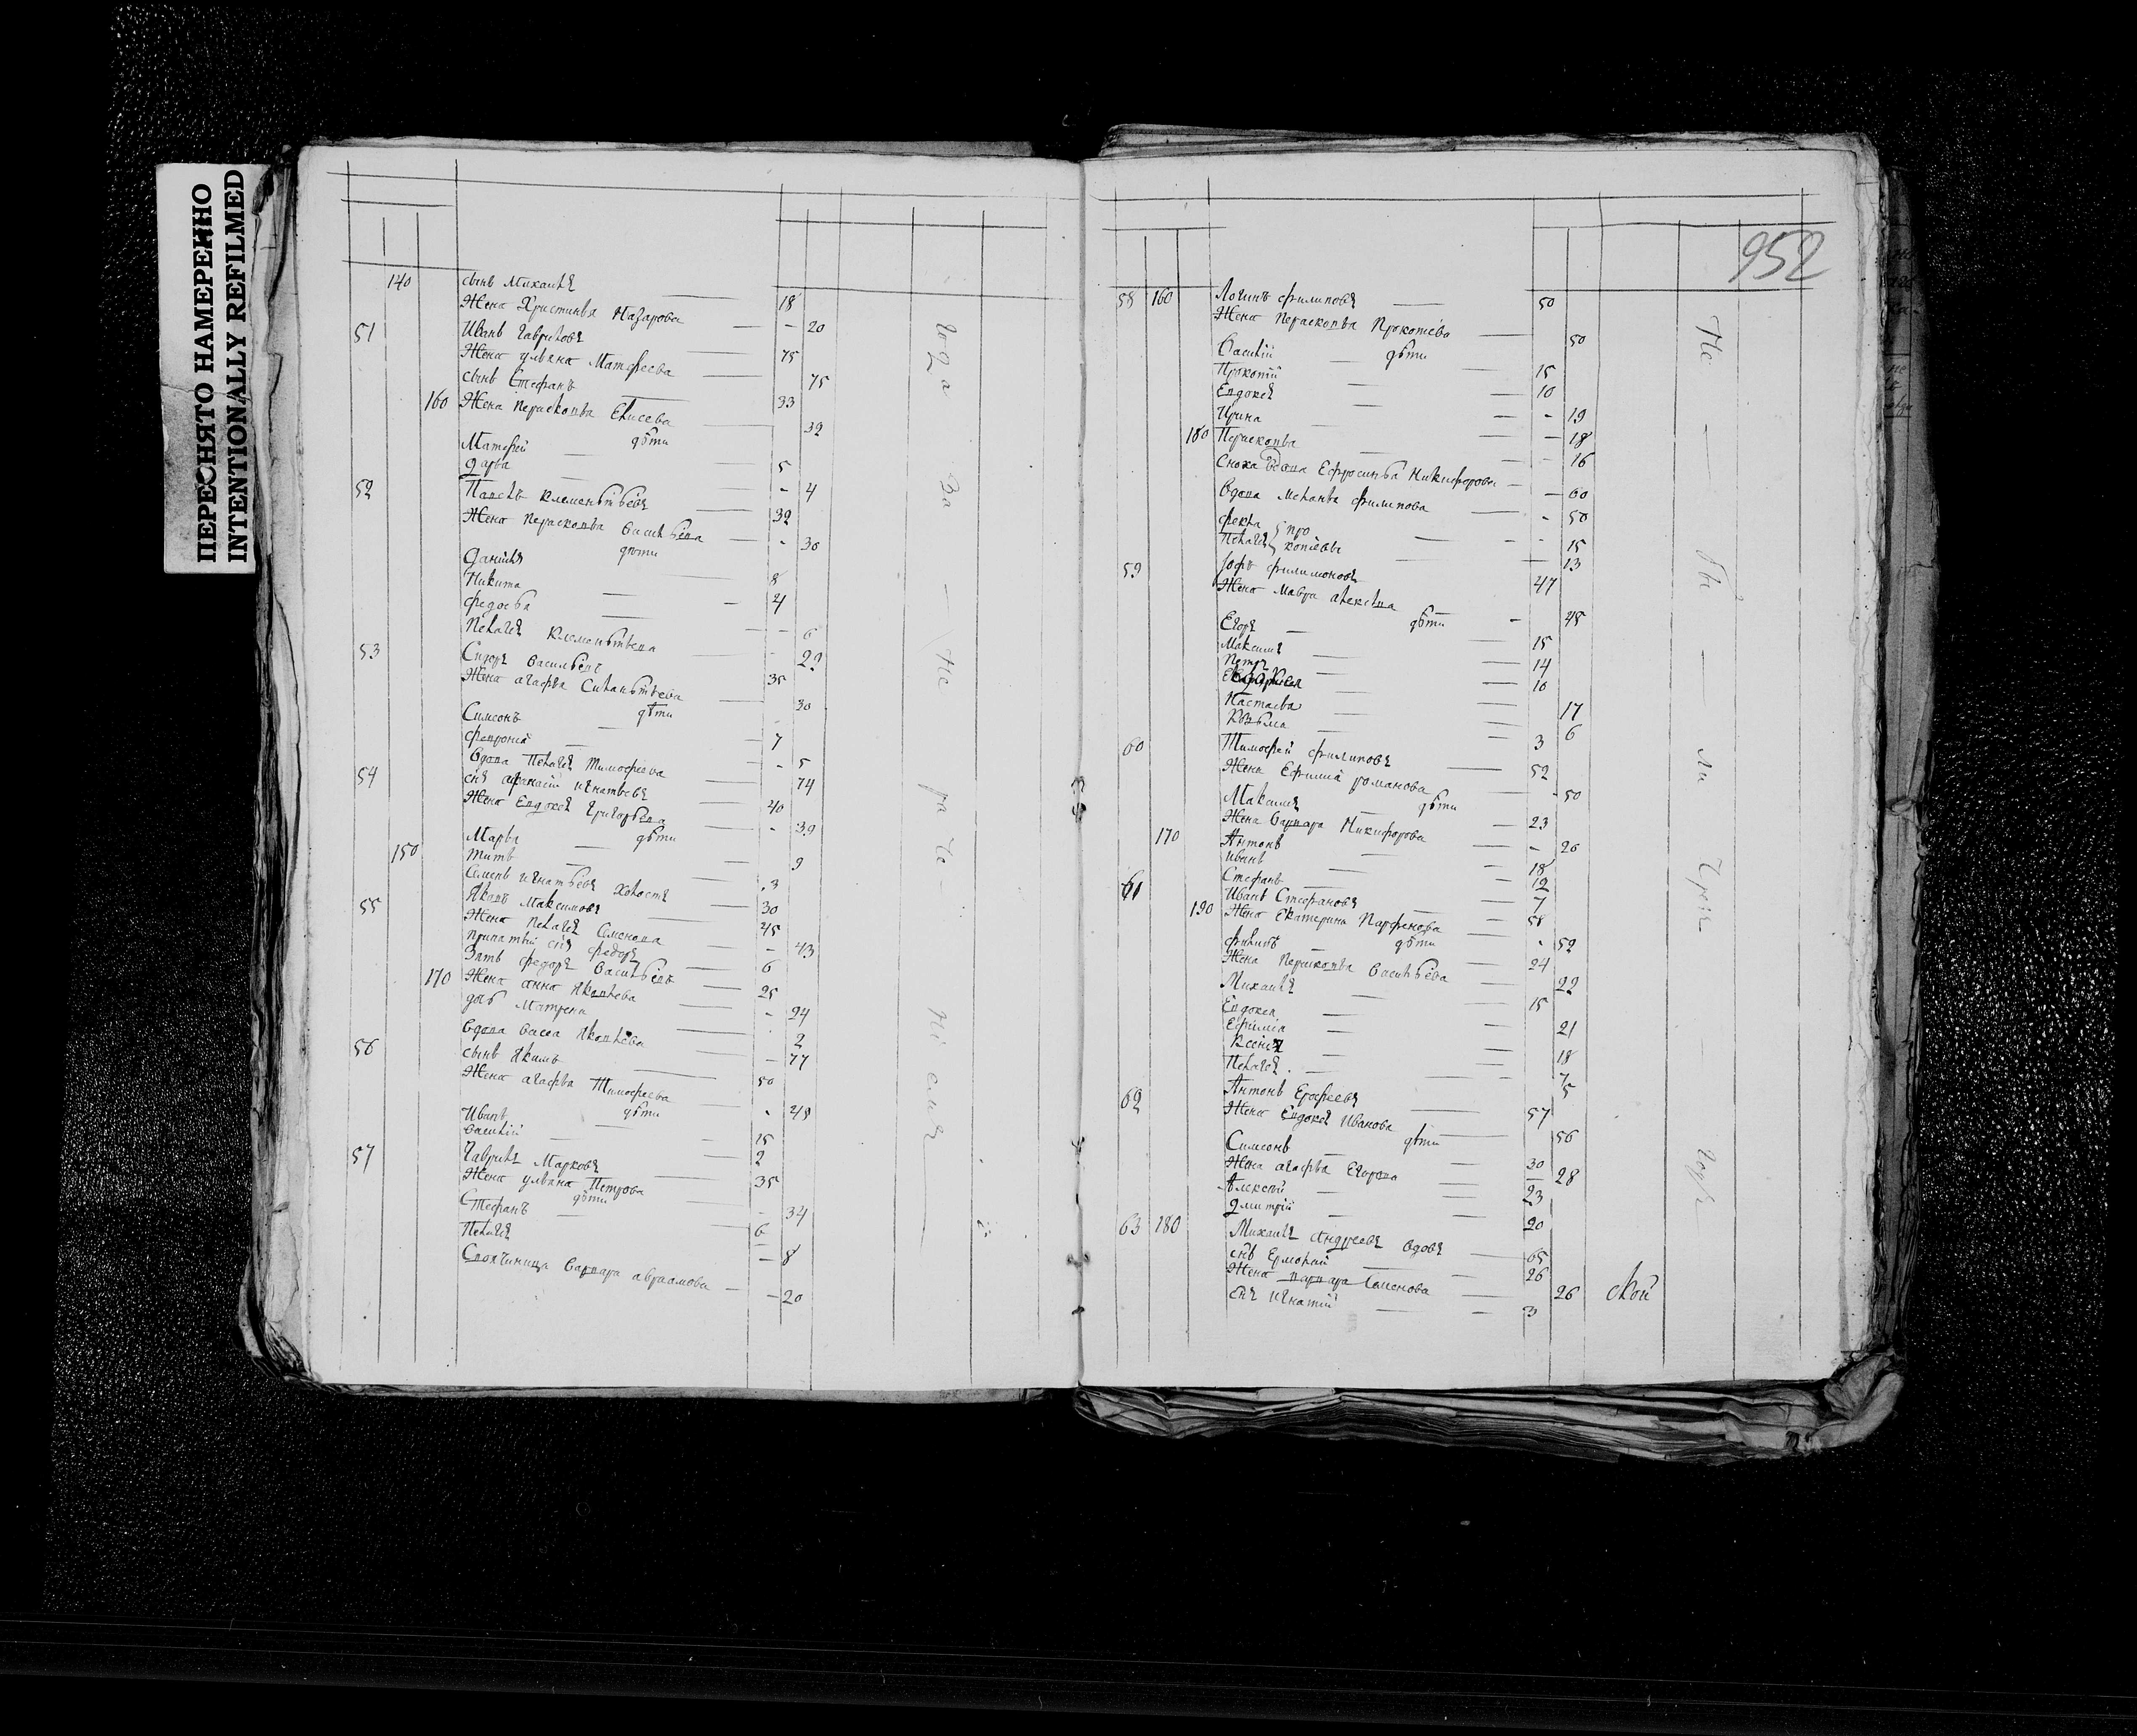 ПЕРЕСНЯТО НАМЕРЕННО
INTENTIONALLY REFILMED
140 сынъ Михаилъ 18
Жена Христинья Назарова - 20
51 Иванъ Гавриловъ 75
Жена ульяна Матфеева 75
сынъ Стефанъ 33
160 Жена Перасковья Елисева 32
дѣти
Матфей 5
дарья - 4
52 Павелъ Клементьевъ 32
Жена Перасковья Васильева - 30
дѣти
Данiилъ 8
Никита 4
федосья - 6
Пелагея Клементьева 22
53 Сидоръ Васильевъ 35
Жена агафья Силантьева 30
дѣти
Симеонъ 7
феврониа - 5
Вдова Пелагея Тимофеева 74
54 снъ афанасiй игнатьевъ 40
Жена Евдокея Григорьева - 39
дѣти
Марья 9
150 титъ 3
Семенъ игнатьевъ холостъ 30
55 Яковъ Максимовъ 45
Жена Пелагея Семенова - 43
приматый снъ федоръ 6
Зять федоръ Васильевъ 25
170 Жена анна Яковлева - 24
дочь Матрена 2
Вдова Васса Яковлева - 77
56 сынъ Якимъ 50
Жена агафья Тимофеева 48
дѣти
Иванъ 15
Василiй 2
57 Гаврилъ Марковъ 35
Жена ульяна Петрова - 34
дѣти
Стефанъ 6
Пелагея - 8
Своячиница Варвара авраамова - 20
952
58 160 Логинъ филиповъ 50
Жена Перасковья Прокофева 50
дѣти
Василiй 15
Прокопiй 10
Евдокея - 19
Ирина - 18
180 Перасковья - 16
Сноха Вдова Ефросинья Никифорова - 60
Вдова Меланья филипова - 50
фекла 15
Пелагея 13
59 филимоновъ 47
Жена Мавра алексева 45
дѣти
Егоръ 15
Максимъ 14
Петръ 10
17
Настасья 6
Козьма 3
60 Тимофей филиповъ 52
Жена Ефимия романова 50
дѣти
Максимъ 23
Жена Варвара Никифорова - 26
170 Антонъ 18
иванъ 12
Стефанъ 7
61 Иванъ Стефановъ 58
190 Жена Екатерина Парфенова - 52
дѣти
филипъ 24
Жена Перасковья Васильева 22
Михаилъ 15
Евдокея 21
Ефимiа 18
Ксения 7
Пелагея 5
62 Антонъ Ерофеевъ 57
Жена Евдокея Иванова 56
дѣти
Симеонъ 30
Жена агафья Егорова 28
Алексей 23
Дмитрiй 20
63 180 Михаилъ Андреевъ вдовъ 65
снъ Ермолай 26
Жена Варвара Семенова 26
снъ игнатiй 3
ской